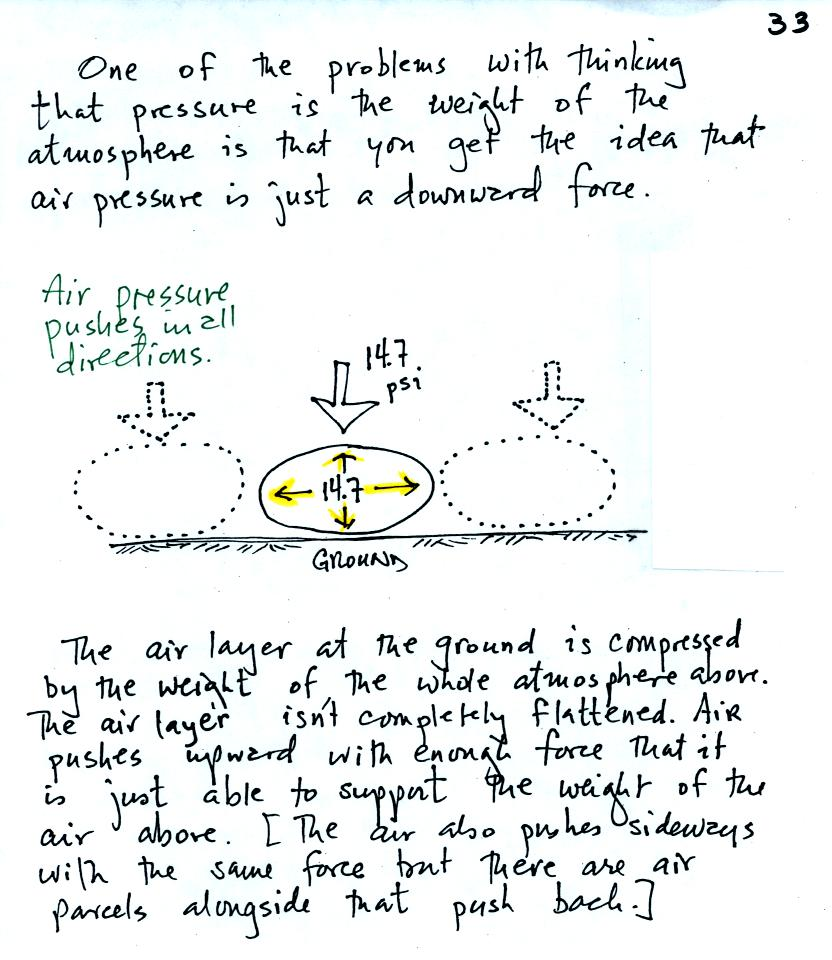 33
One of the problems with thinking
that pressure is the weight of the
atmosphere is that you get the idea that
air pressure is just a downward force.
Air pressure
pushes in all
directions.
14.7
psi
14.7
GROUND
The air layer at the ground is compressed
by the weight of the whole atmosphere above.
The air layer isn't completely flattened. Air
pushes upward with enough force that it
is just able to support the weight of the
air above. [The air also pushes sideways
with the same force but there are air
parcels alongside that push back.]